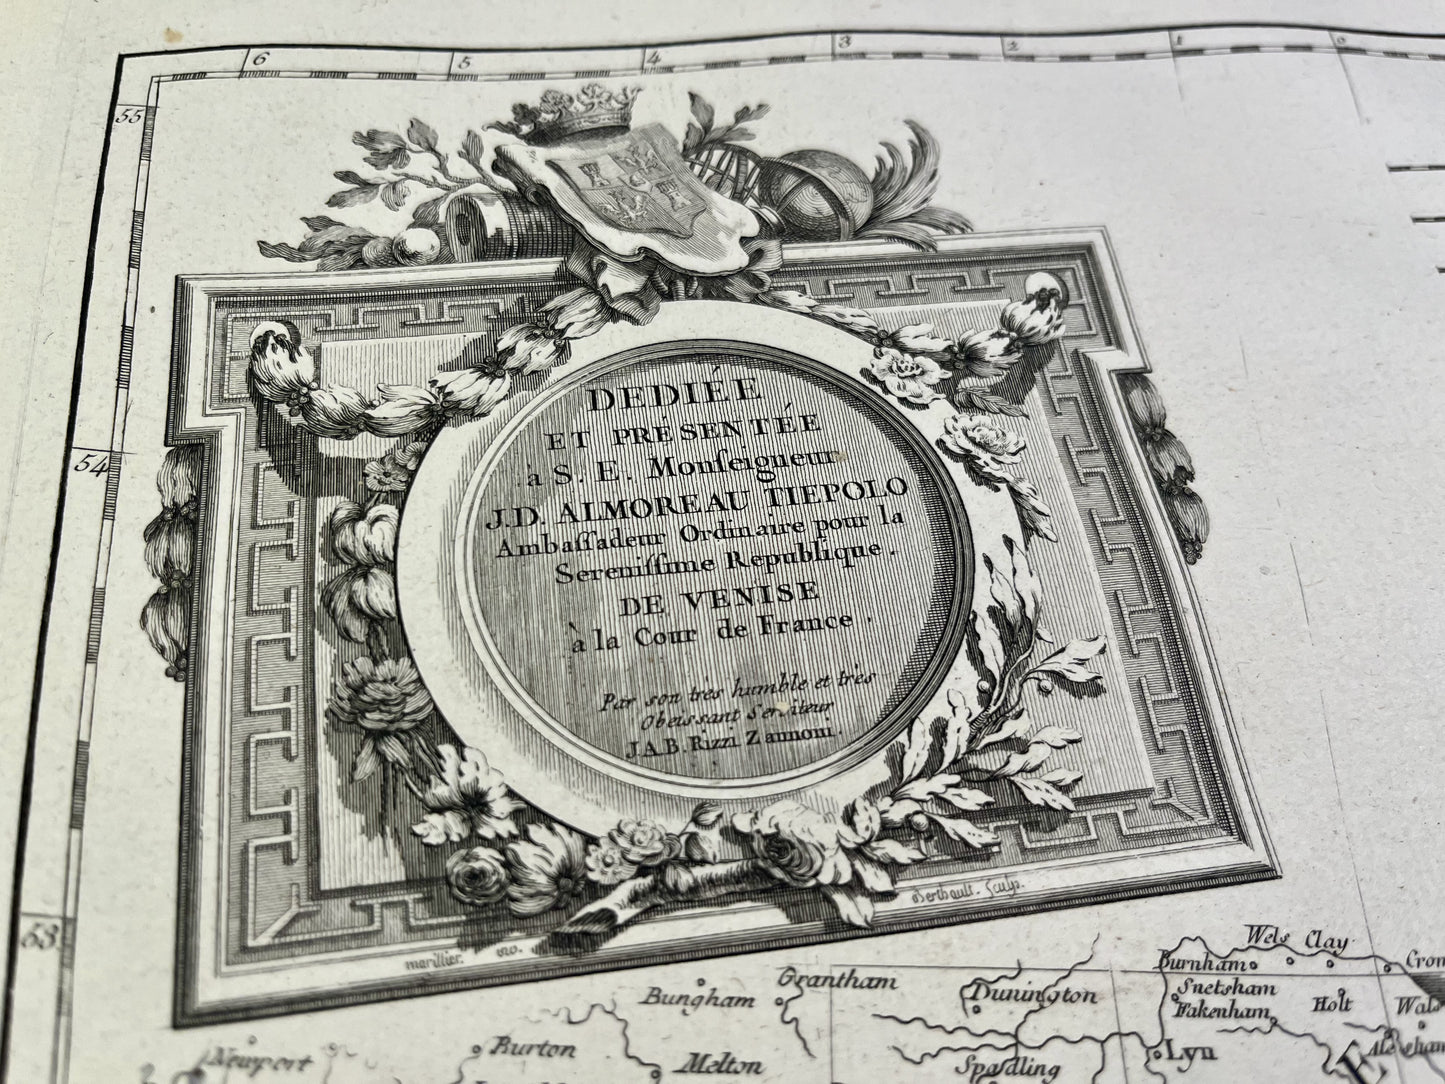 6 5 4 3 2 1 0
55
DEDIÉE
ET PRÉSENTÉE
à S. E. Monſeigneur
J.D. ALMOREAU TIEPOLO
Ambaſſadeur Ordinaire pour la
Sereniſſime Republique.
DE VENISE
à la Cour de France.
Par son très humble et très
Obeissant Serviteur
J.A.B. Rizzi Zannoni.
54
53
marillier. Berthault. Sculp.
Wels Clay
Burnham
Grantham
Snetsham
Bungham
Dunington
Fakenham
Holt
Newport
Burton
Melton
Spaldling
Lyn